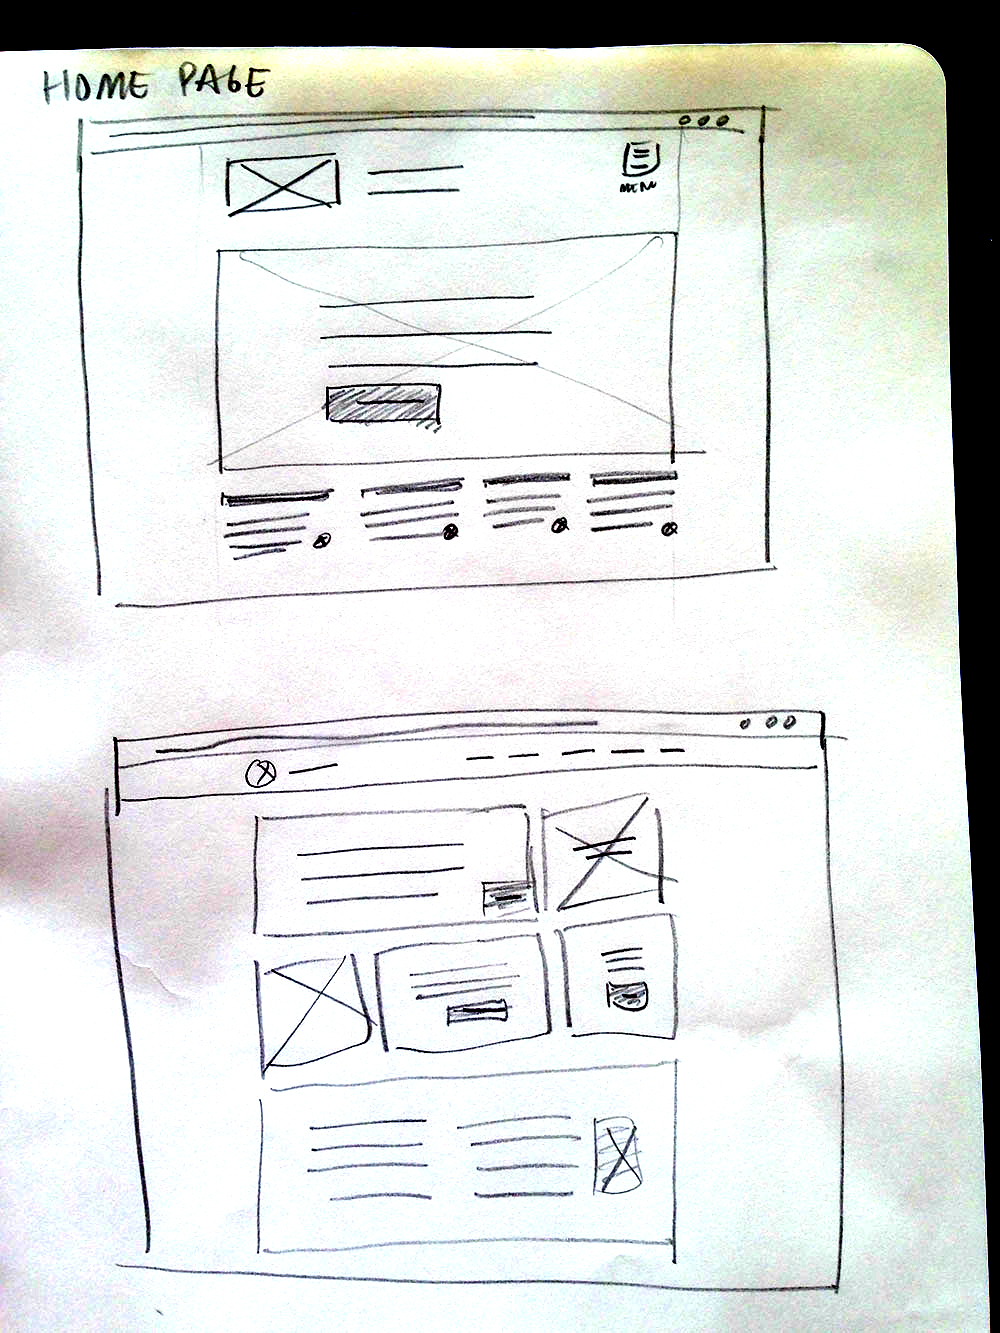 HOME PAGE
MENU